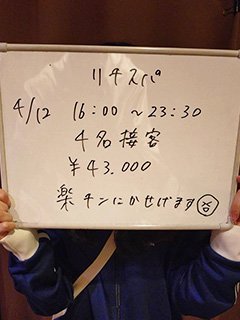 リチスパ
4/12 16:00 〜 23:30
4名接客
¥43.000
楽チンにかせげます